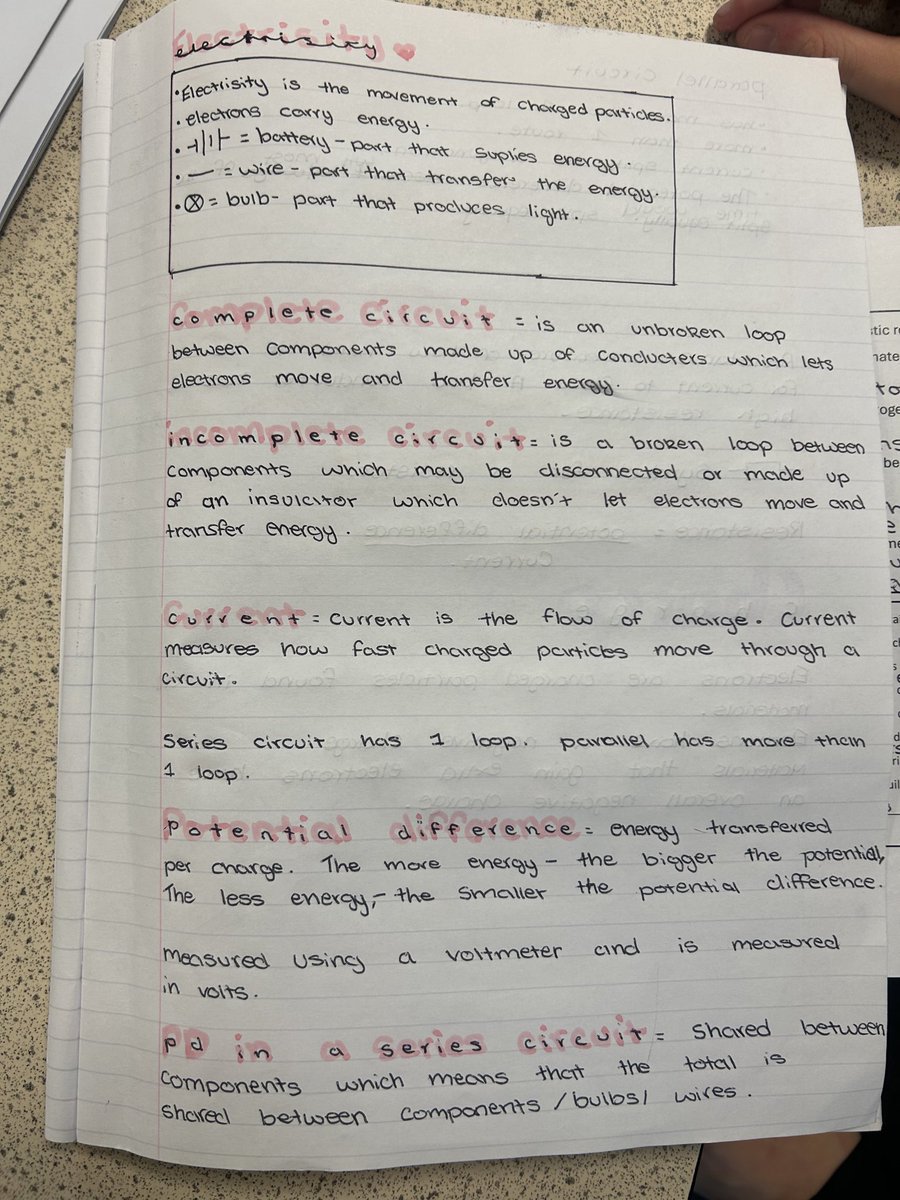 electrisity
• Electrisity is the movement of charged particles.
• electrons carry energy.
• = battery - part that suplies energy.
• — = wire - part that transfers the energy.
• = bulb - part that produces light.
complete circuit = is an unbroken loop
between components made up of conducters which lets
electrons move and transfer energy.
incomplete circuit = is a broken loop between
components which may be disconnected or made up
of an insulator which doesn't let electrons move and
transfer energy.
current = current is the flow of charge. Current
measures how fast charged particles move through a
circuit.
Series circuit has 1 loop. parallel has more than
1 loop.
Potential difference = energy transferred
per charge. The more energy - the bigger the potential,
The less energy, - the smaller the potential difference.
measured using a voltmeter and is measured
in volts.
PD in a series circuit = shared between
components which means that the total is
shared between components / bulbs / wires.